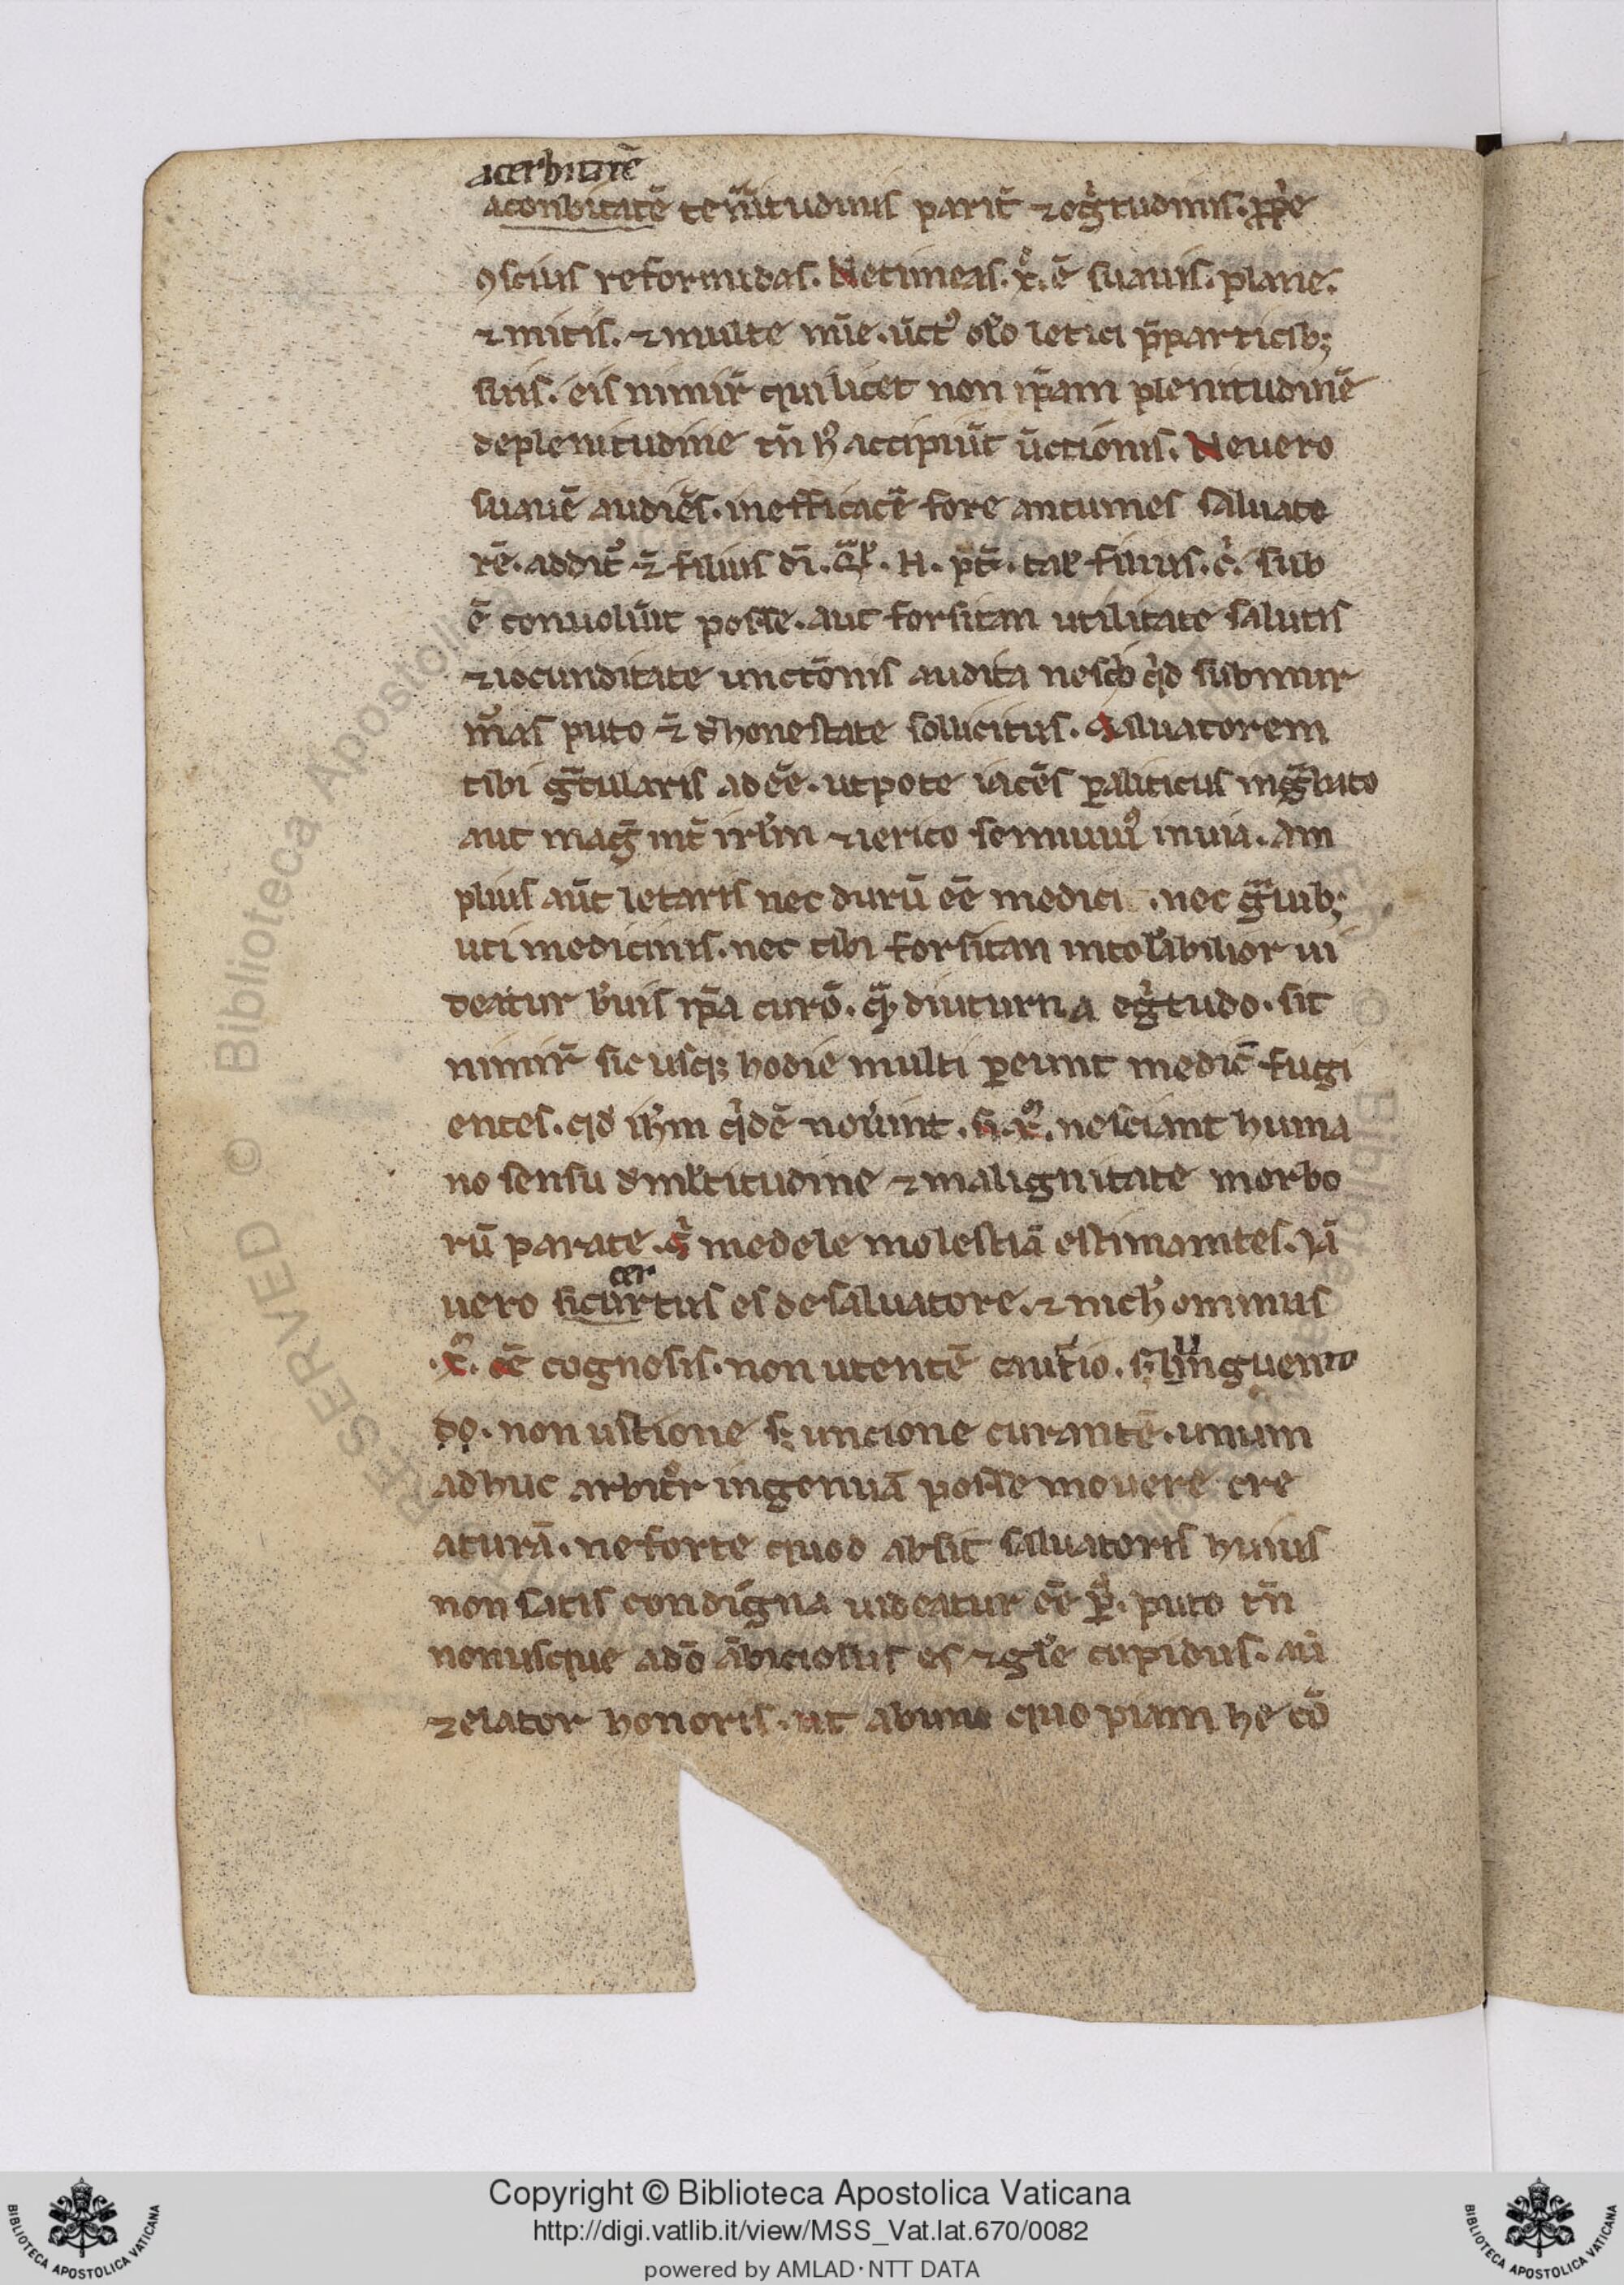 acerbitatē
aconbitatē tenuitudinis parit̄ ⁊ egͥtudinis. ꝓpͥe
ꝯscius reformidas. Ne timeas. xͦ. ē suauis. plane.
⁊ mitis. ⁊ multe mīe. ūctꝰ oleo leticie
suis. eis nimir̄ qui licet non ip̄am plenitudinē
de plenitudine tn̄ accipiūt ūctionis. Ne uero
suauē audiēs. inefficacē fore antumes saluato
rē. addit᷒ ⁊ filius dī. filius. sub
ē conuoluit posse. aut forsitan utilitate salutis
⁊ iocunditate unctōnis audita qͥd submur
mᷓas puto ⁊ honestate sollicitus. Saluatorem
tibi gᷓtularis adēē. utpote iacēs ꝑaliticus in gᷓbato
aut maḡ int̄ irl̄m ⁊ ierico semiuiuꝰ in uia. Am
plius aūt letaris nec durū eē medici . nec gᷓuibꝫ
uti medicinis. nec tibi forsitan intol̄abilior ui
deatur b̄uis ip̄a curō. qᷓꝫ diuturna egͥtudo. sit
nimir̄ sic usqꝫ hodie multi ꝑeunt medic̄ fugi
entes. qd ih̄m qͥdē nouint. xͫ. nesciant huma
no sensu ml̄titudine ⁊ malignitate morbo
rū parate. medele molestiā estimantes. Iā
cer
uero si curtus es de saluatore. ⁊ nich̄ominus
.xͫ. eē cognosis. non utentē cautio. sꝫ unguen to
do. non ustione sꝫ uncione curantē. unum
adhuc arbitͦr ingenuā posse mouere cre
aturā. ne forte quod absit saluatoris huius
non satis condigna uideatur eē ꝑ. puto tn̄
non usque adō ābiciosus es ⁊ gl̄e cupidus. aū
⁊ elator honoris. ut ab uno quo piam he cō
Copyright © Biblioteca Apostolica Vaticana
http://digi.vatlib.it/view/MSS_Vat.lat.670/0082
powered by AMLAD·NTT DATA